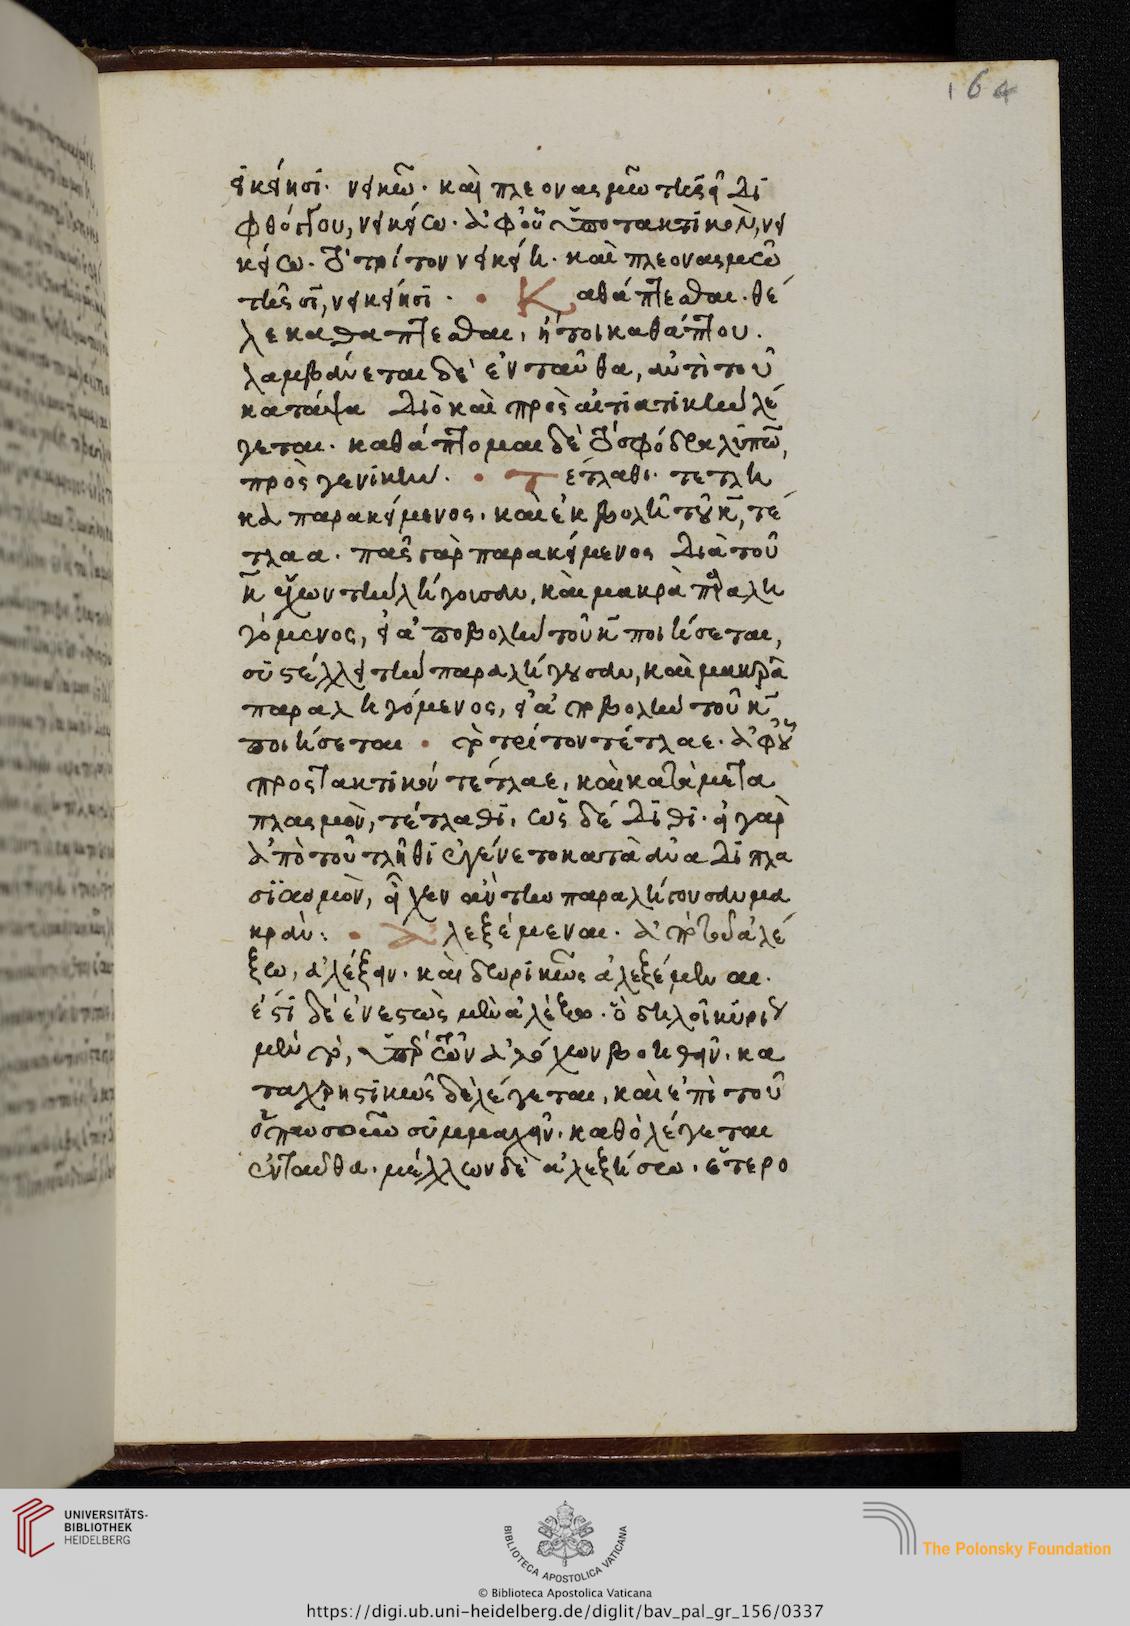 164
εικείησι. νεικῶ. καὶ πλεονασμῶ τῆς ει δι
φθόγγου, νεικείω. ἀφ' οὗ ὑποτακτικὸν, νει
κείω. τὸ τρίτον νεικείη. καὶ πλεονασμῶ
τῆς σι, νεικείησι. Καθάπτεσθαι. θέ
λε καθάπτεσθαι, ἤτοι καθάπτου.
λαμβάνεται δὲ ἐνταῦθα, ἀντὶ τοῦ
κατάψα διὸ καὶ πρὸς αἰτιατικὴν λέ
γεται. καθάπτομαι δὲ τὸ σφόδρα λυπῶ,
πρὸς γενικήν. Τέτλαθι. τέτλη
κα παρακείμενος. καὶ ἐκβολῆ τοῦ κ, τέ
τλαα. πᾶς γὰρ παρακείμενος διὰ τοῦ
κ ἔχων τὴν λήγουσαν, καὶ μακρᾶ παραλη
γόμενος, εἰ ἀποβολὴν τοῦ κ ποιήσεται,
συστέλλει τὴν παραλήγουσαν, καὶ μακρᾶ
παραληγόμενος, εἰ ἀποβολὴν τοῦ κ
ποιήσεται τὸ τρίτον τέτλαε. ἀφ' οὗ
προστακτικὸν τέτλαε, καὶ κατὰ μετα
πλασμὸν, τέτλαθι, ὡς δέδιθι. εἰ γὰρ
ἀπὸ τοῦ τλῆθι ἐγένετο κατὰ ἀναδιπλα
σϊασμὸν, εἶχεν ἂν τὴν παραλήγουσαν μα
κράν: Ἀλεξέμεναι. ἀπὸ τοῦ ἀλέ
ξω, ἀλέξειν. καὶ δωρικῶς ἀλεξέμεναι.
ἐστὶ δὲ ἐνεστὼς μὲν ἀλέξω. ὃ δηλοῖ κυρίου
μὲν τὸ, ὑπὲρ τῶν ἀλόχων βοηθεῖν. κα
ταχρηστικῶς δὲ λέγεται, καὶ ἐπὶ τοῦ
ὁπωσοῦν συμμαχεῖν. καθὸ λέγεται
ἐνταῦθα. μέλλων δὲ ἀλεξήσω. ἕτερο
UNIVERSITÄTS-
BIBLIOTHEK
HEIDELBERG
BIBLIOTECA APOSTOLICA VATICANA
The Polonsky Foundation
© Biblioteca Apostolica Vaticana
https://digi.ub.uni-heidelberg.de/diglit/bav_pal_gr_156/0337